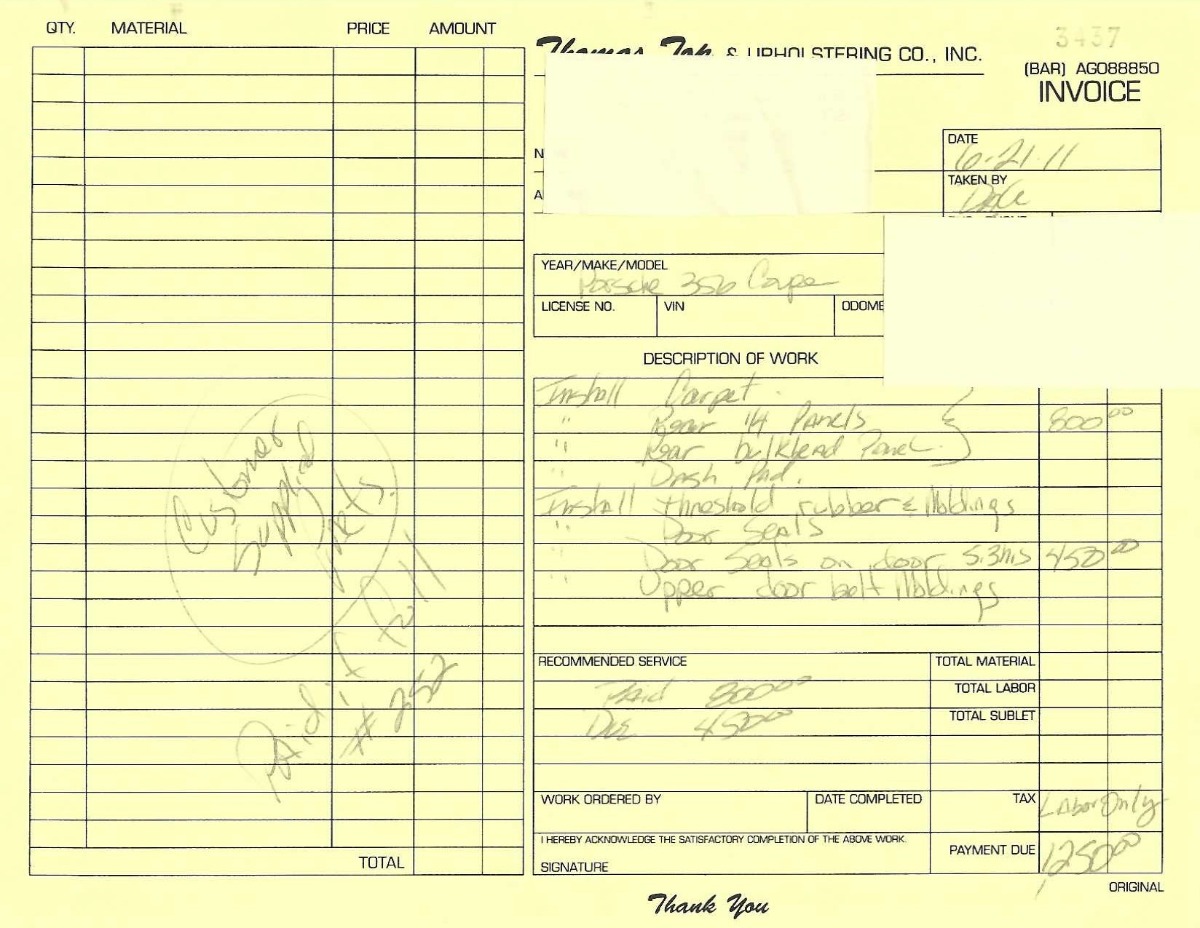 QTY. MATERIAL PRICE AMOUNT
Thomas Top & UPHOLSTERING CO., INC.
3437
(BAR) AG088850
INVOICE
DATE
6-21-11
TAKEN BY
Dale
YEAR/MAKE/MODEL
Porsche 356 Coupe
LICENSE NO. VIN ODOME
DESCRIPTION OF WORK
Install Carpet
" Rear 1/4 Panels 800 00
" Rear bulkhead Panel
" Dash Pad.
Install threshold rubber & Moldings
" Door Seals
" Door Seals on door 5.3hrs 450 00
" Upper door belt Moldings
Customer
Supplied
parts.
Paid in Full
# 252
RECOMMENDED SERVICE
Paid 800 00
Due 450 00
TOTAL MATERIAL
TOTAL LABOR
TOTAL SUBLET
WORK ORDERED BY DATE COMPLETED TAX Labor Only
I HEREBY ACKNOWLEDGE THE SATISFACTORY COMPLETION OF THE ABOVE WORK.
SIGNATURE
PAYMENT DUE 1,250 00
TOTAL
ORIGINAL
Thank You